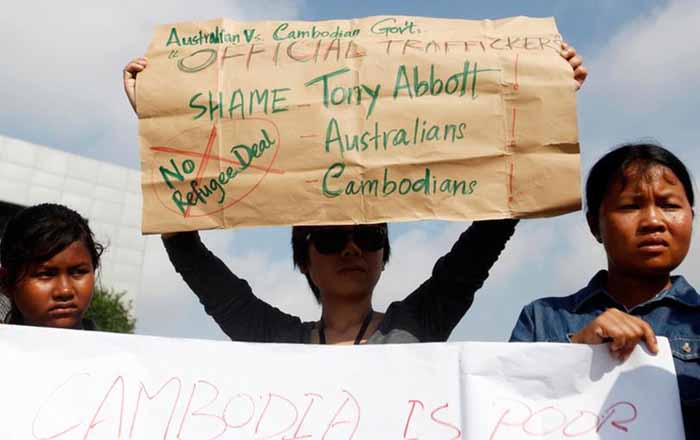 Australian Vs. Cambodian Gov't.
"OFFICIAL TRAFFICKER"
SHAME - Tony Abbott !
- Australians !
- Cambodians !
No
Refugee Deal
CAMBODIA IS POOR